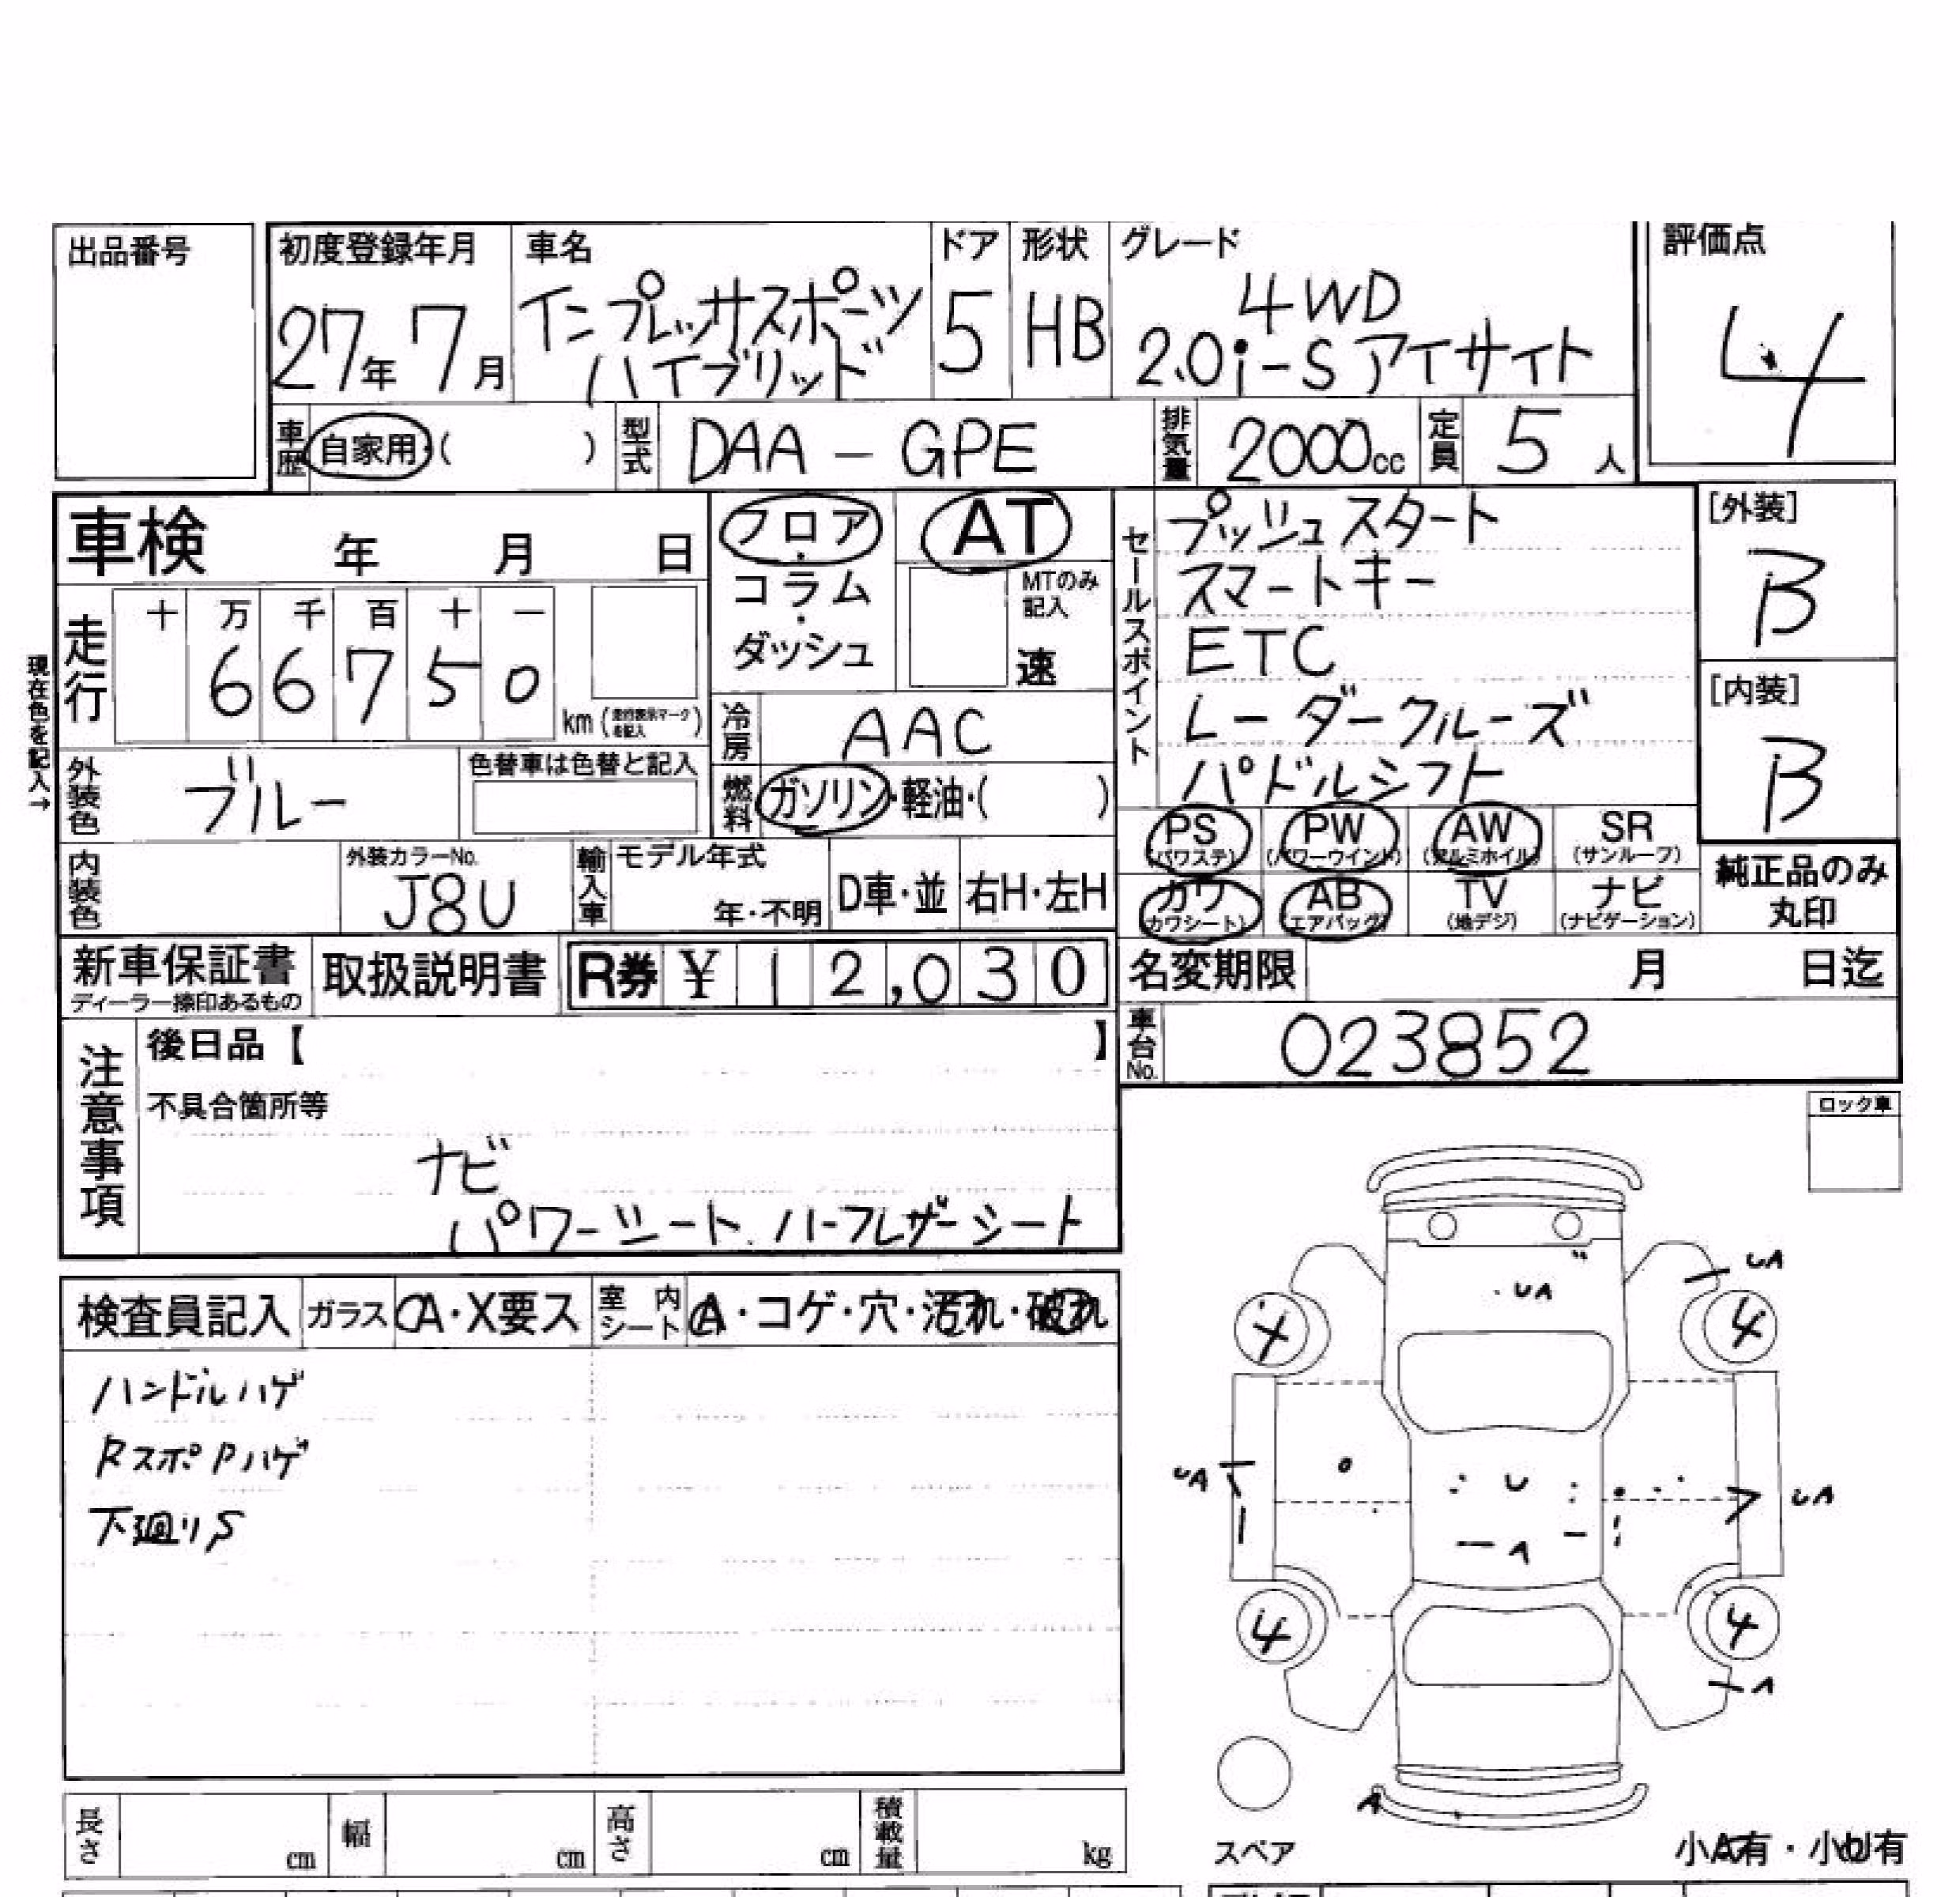 出品番号
初度登録年月
27年 7月
車名
インプレッサスポーツ
ハイブリッド
ドア
5
形状
HB
グレード
4WD
2.0i-S アイサイト
評価点
4
車歴 自家用・( )
型式 DAA - GPE
排気量 2000cc
定員 5人
車検 年 月 日
フロア・コラム・ダッシュ
AT
MTのみ記入
速
現在色を記入→
走行
十 万 千 百 十 一
6 6 7 5 0
km
冷房 AAC
燃料 ガソリン・軽油・( )
外装色 ブルー
色替車は色替と記入
内装色
外装カラーNo.
J8U
輸入車
モデル年式
年・不明
D車・並
右H・左H
セールスポイント
プッシュスタート
スマートキー
ETC
レーダークルーズ
パドルシフト
[外装]
B
[内装]
B
PS (パワステ)
PW (パワーウインド)
AW (アルミホイル)
SR (サンルーフ)
カワ (カワシート)
AB (エアバッグ)
TV (地デジ)
ナビ (ナビゲーション)
純正品のみ
丸印
新車保証書
ディーラー捺印あるもの
取扱説明書
R券 ¥ 12,030
名変期限 月 日迄
車台No. 023852
注意事項
後日品【 】
不具合箇所等
ナビ
パワーシート、ハーフレザーシート
ロック車
検査員記入
ガラス A・X要ス
室内シート A・コゲ・穴・汚れ・破れ
ハンドルハゲ
RスポPハゲ
下廻りS
UA
UA
4
4
UA
U
UA
A
4
4
A
A
スペア
小A有・小U有
長さ cm
幅 cm
高さ cm
積載量 kg